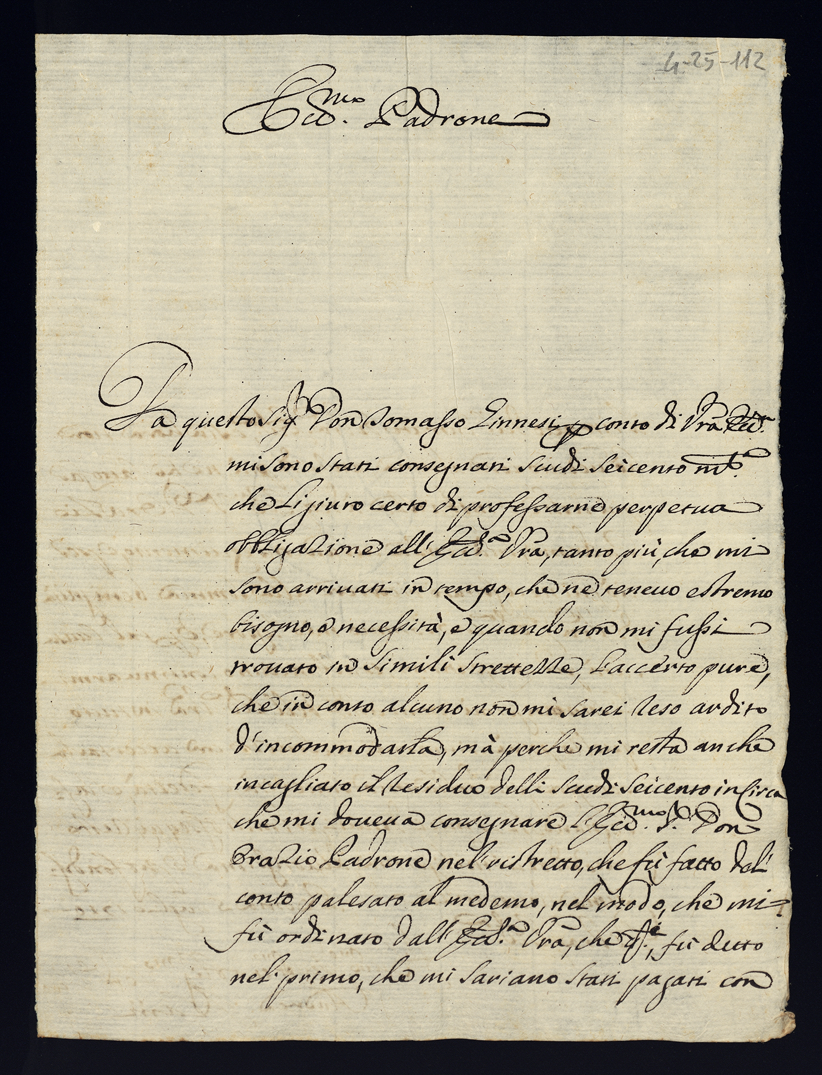 4-25-112
Ecc.mo Padrone
Da questo Sig.r Don Tomasso Zinnesi per conto di Vrã Ecc.a
mi sono stati consegnati scudi seicento m.ta
che L'giuro certo di professarne perpetua
obbligazione all'Ecc.a Vrã, tanto più, che mi
sono arrivati in tempo, che ne tenevo estremo
bisogno, e necessità, e quando non mi fussi
trovato in simili strettezze, l'accerto pure,
che in conto alcuno non mi sarei reso ardito
d'incommodarla, mà perche mi resta anche
incagliato il residuo delli scudi seicento in circa
che mi doveva consegnare l'Ecc.mo S. Don
Orazio Padrone nel ristretto, che fù fatto del
conto palesato al medemo, nel modo, che mi
fù ordinato dall'Ecc.a Vrã, che fù detto
nel primo, che mi sariano stati pagati con